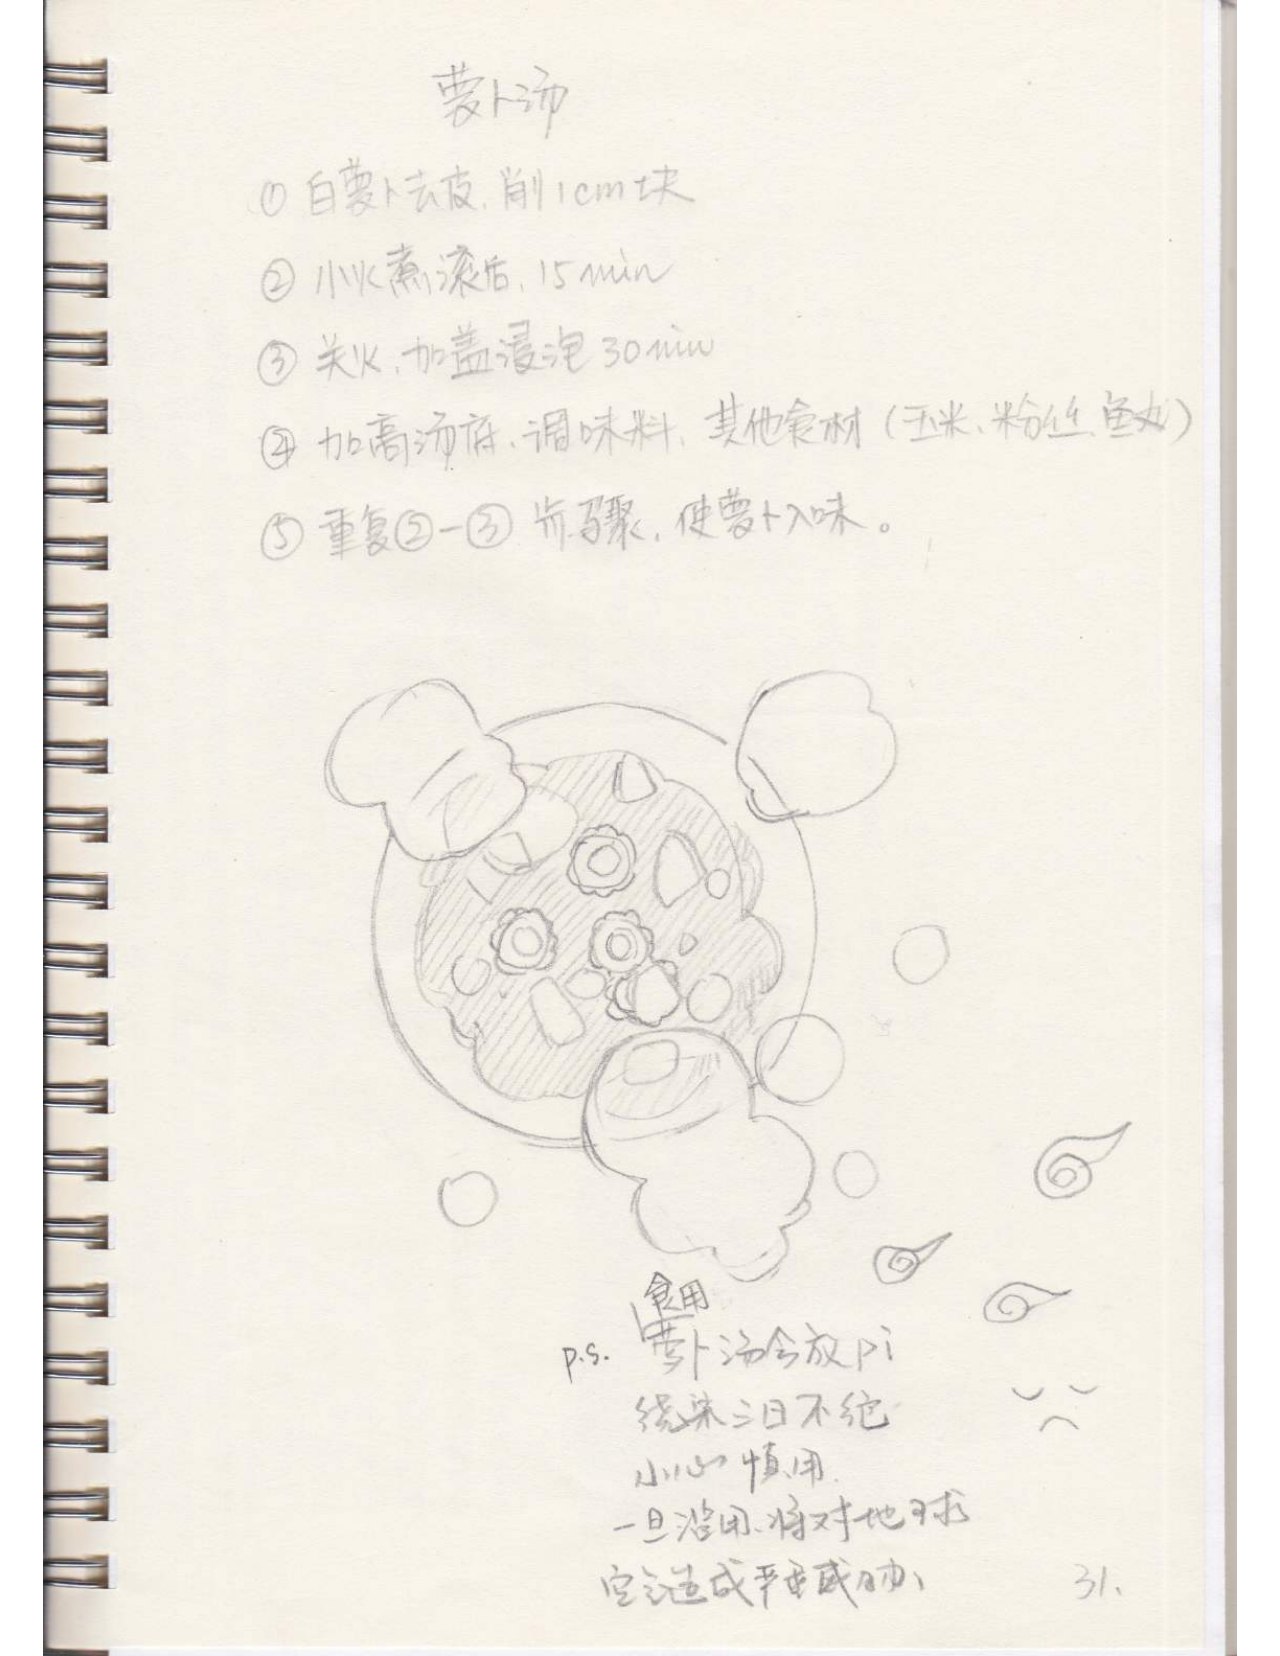 萝卜汤
① 白萝卜去皮，削1cm块
② 小火煮滚后，15min
③ 关火，加盖浸泡30min
④ 加高汤底、调味料、其他食材（玉米、粉丝、鱼丸）
⑤ 重复②-③步骤，使萝卜入味。
食用
p.s. 萝卜汤会放pi
绕梁三日不绝
小心慎用.
一旦滥用，将对地球
空造成严重威胁、
31.